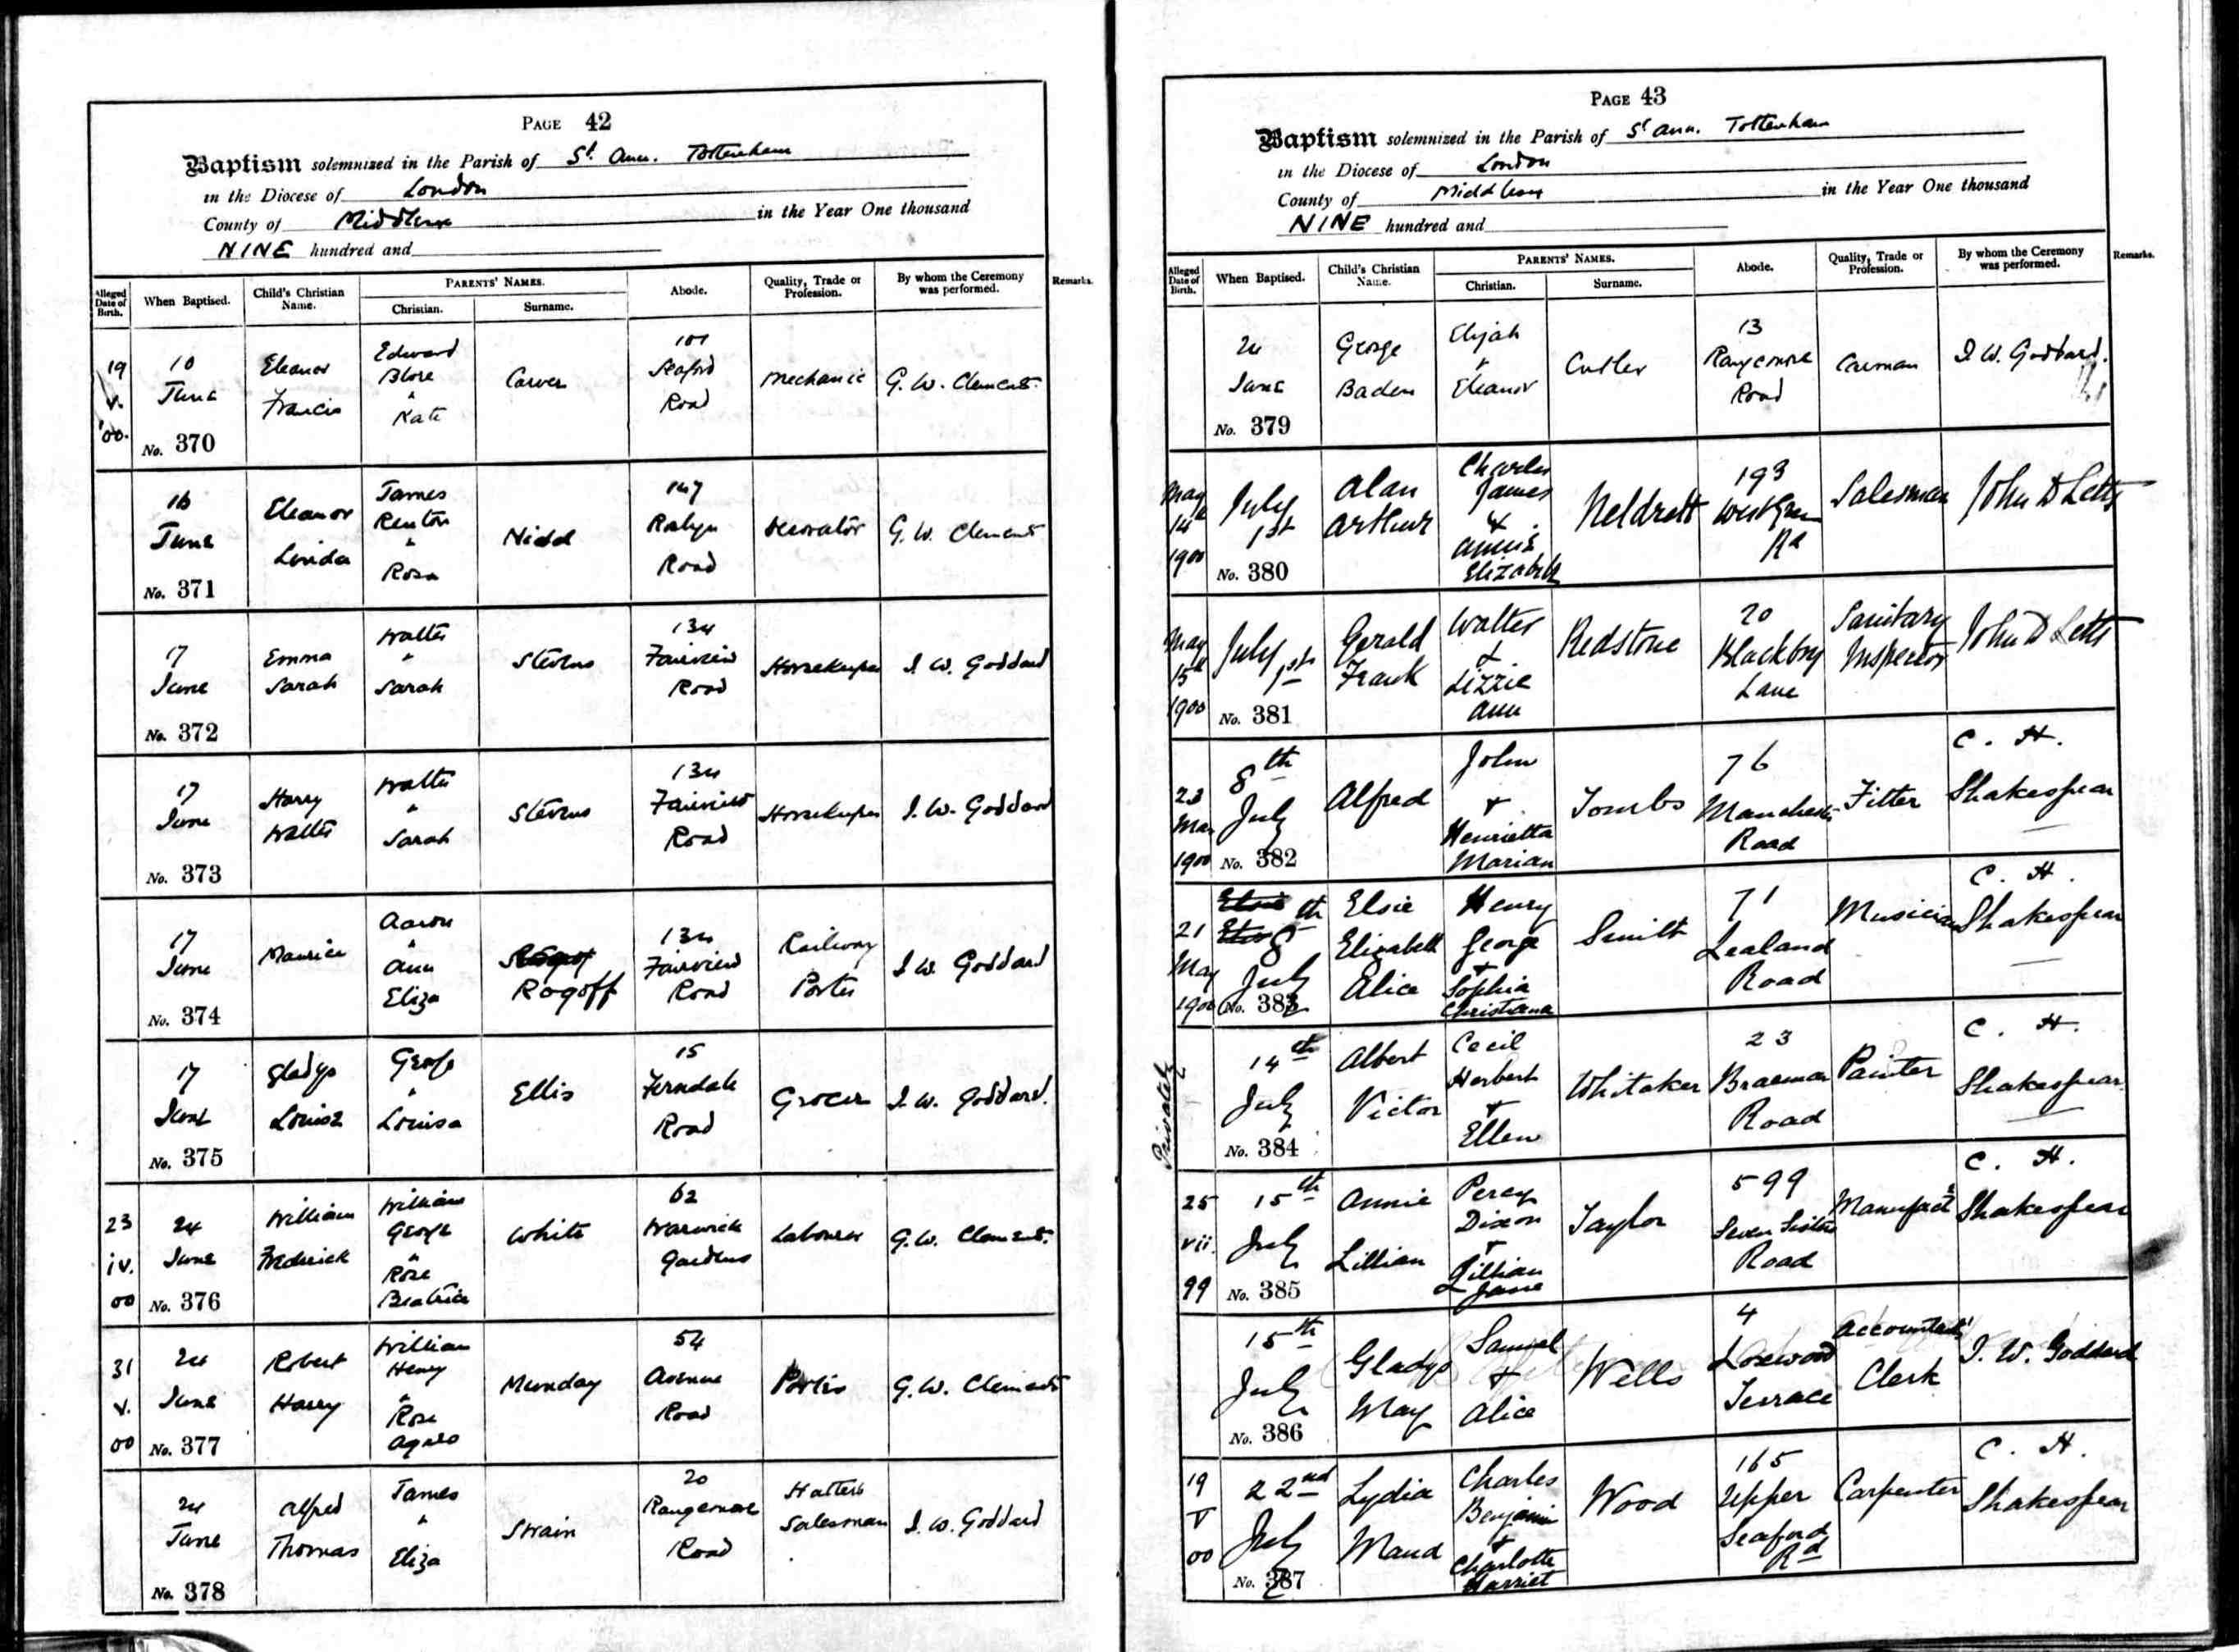 PAGE 42
Baptism solemnized in the Parish of St. Ann. Tottenham
in the Diocese of London
County of Middlesex in the Year One thousand
NINE hundred and
Alleged Date of Birth. When Baptised. Child's Christian Name. PARENTS' NAMES. Christian. Surname. Abode. Quality, Trade or Profession. By whom the Ceremony was performed. Remarks.
19 v. '00. 10 June No. 370 Eleanor Francis Edward Blore & Kate Carver 101 Seaford Road Mechanic G. W. Clement.
16 June No. 371 Eleanor Linda James Renton & Rosa Nidd 147 Roslyn Road Decorator G. W. Clement
17 June No. 372 Emma Sarah Walter & Sarah Stevens 134 Fairview Road Horsekeeper J. W. Goddard
17 June No. 373 Harry Walter Walter & Sarah Stevens 134 Fairview Road Horsekeeper J. W. Goddard
17 June No. 374 Maurice Aaron & Ann Eliza Rogoff 134 Fairview Road Railway Porter J. W. Goddard
17 June No. 375 Gladys Louisa George & Louisa Ellis 15 Ferndale Road Grocer J. W. Goddard.
23 iv. 00 24 June No. 376 William Frederick William George & Rose Beatrice White 62 Warwick Gardens Labourer G. W. Clement.
31 v. 00 24 June No. 377 Robert Harry William Henry & Rose Agnes Munday 54 Avenue Road Porter G. W. Clement
24 June No. 378 Alfred Thomas James & Eliza Strain 20 Rangemore Road Hatters Salesman J. W. Goddard
PAGE 43
Baptism solemnized in the Parish of St Ann. Tottenham
in the Diocese of London
County of Middlesex in the Year One thousand
NINE hundred and
Alleged Date of Birth. When Baptised. Child's Christian Name. PARENTS' NAMES. Christian. Surname. Abode. Quality, Trade or Profession. By whom the Ceremony was performed. Remarks.
24 June No. 379 George Baden Elijah & Eleanor Cutler 13 Rangemore Road Carman J. W. Goddard.
May 14th 1900 July 1st No. 380 Alan Arthur Charles James & Annie Elizabeth Neldrett 193 West Green Rd Salesman John D Letts
May 15th 1900 July 1st No. 381 Gerald Frank Walter & Lizzie Ann Redstone 20 Blackboy Lane Sanitary Inspector John D Letts
23 Mar 1900 8th July No. 382 Alfred John & Henrietta Marian Tombs 76 Manchester Road Fitter C. H. Shakespear
21 May 1900 8th July No. 383 Elsie Elizabeth Alice Henry George & Sophia Christiana Smith 71 Lealand Road Musician C. H. Shakespear
Privately 14th July No. 384 Albert Victor Cecil Herbert & Ellen Whitaker 23 Braemar Road Painter C. H. Shakespear
25 vii. 99 15th July No. 385 Annie Lillian Percy Dixon & Lillian Jane Taylor 599 Seven Sisters Road Manufactr C. H. Shakespear
15th July No. 386 Gladys May Samuel & Alice Wells 4 Loxwood Terrace Accountants' Clerk J. W. Goddard
19 V 00 22nd July No. 387 Lydia Maud Charles Benjamin & Charlotte Harriet Wood 165 Upper Seaford Rd Carpenter C. H. Shakespear